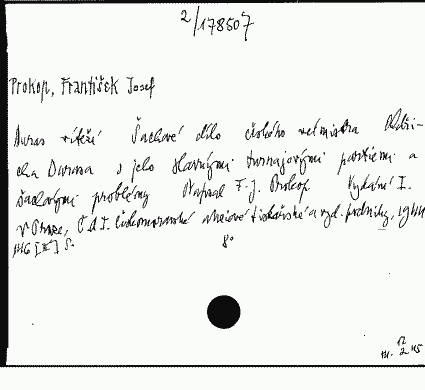 2/178507
Prokop, František Josef
Duras vítězí Šachové dílo českého velmistra Oldři-
cha Durasa s jeho slavnými turnajovými partiemi a
šachovými problémy Napsal F. J. Prokop Vydání I.
V Praze, Českomoravské akciové tiskařské a vyd. podniky, 1944
146 S. 8°
12
2 45